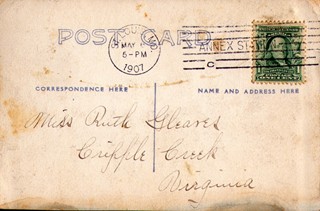 POST CARD
ST. LOUIS, MO.
MAY
6-PM
1907
ANNEX STA
CORRESPONDENCE HERE
NAME AND ADDRESS HERE
Miss Ruth Gleaves
Cripple Creek
Virginia